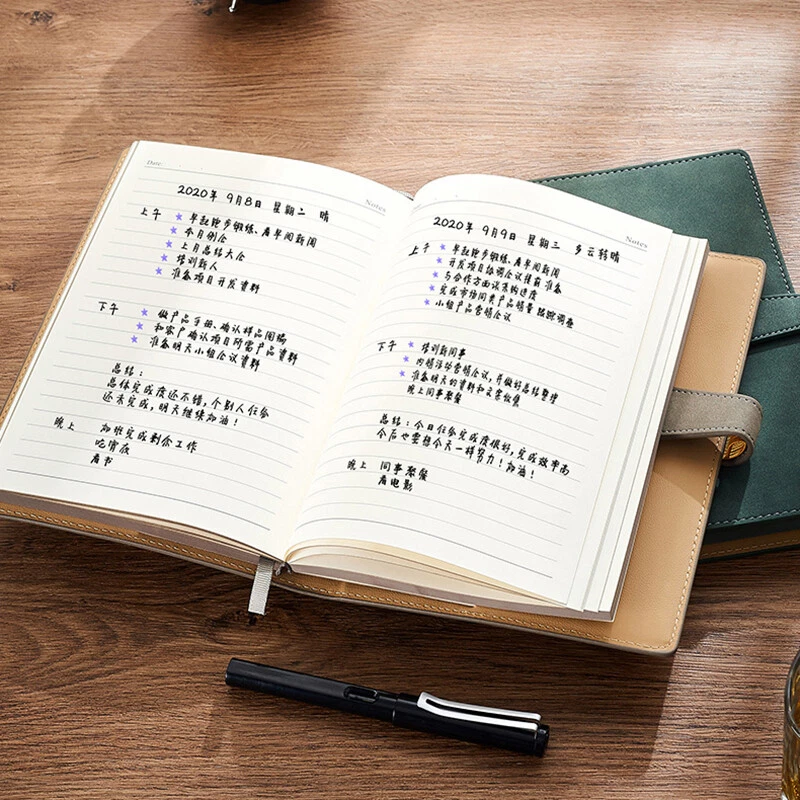 Date:
Notes
2020年 9月8日 星期二 晴
上午 ★ 早起跑步锻练、看早间新闻
★ 本月例会
★ 上月总结大会
★ 培训新人
★ 准备项目开发资料
下午 ★ 做产品手册、确认样品图稿
★ 和客户确认项目所需产品资料
★ 准备明天小组会议资料
总结:
总体完成度还不错,个别人任务
还未完成,明天继续加油!
晚上 加班完成剩余工作
吃宵夜
看书
Notes
2020年 9月9日 星期三 多云转晴
上午 ★ 早起跑步锻练、看早间新闻
★ 开发项目协调会议提前准备
★ 与合作方面谈采购进度
★ 完成市场同类产品销量跟踪调查
★ 小组产品营销会议
下午 ★ 培训新同事
★ 内购活动营销会议,并做好总结整理
★ 准备明天的资料和文案收集
晚上同事聚餐
总结:今日任务完成度很好,完成效率高
今后也要想今天一样努力!加油!
晚上 同事聚餐
看电影